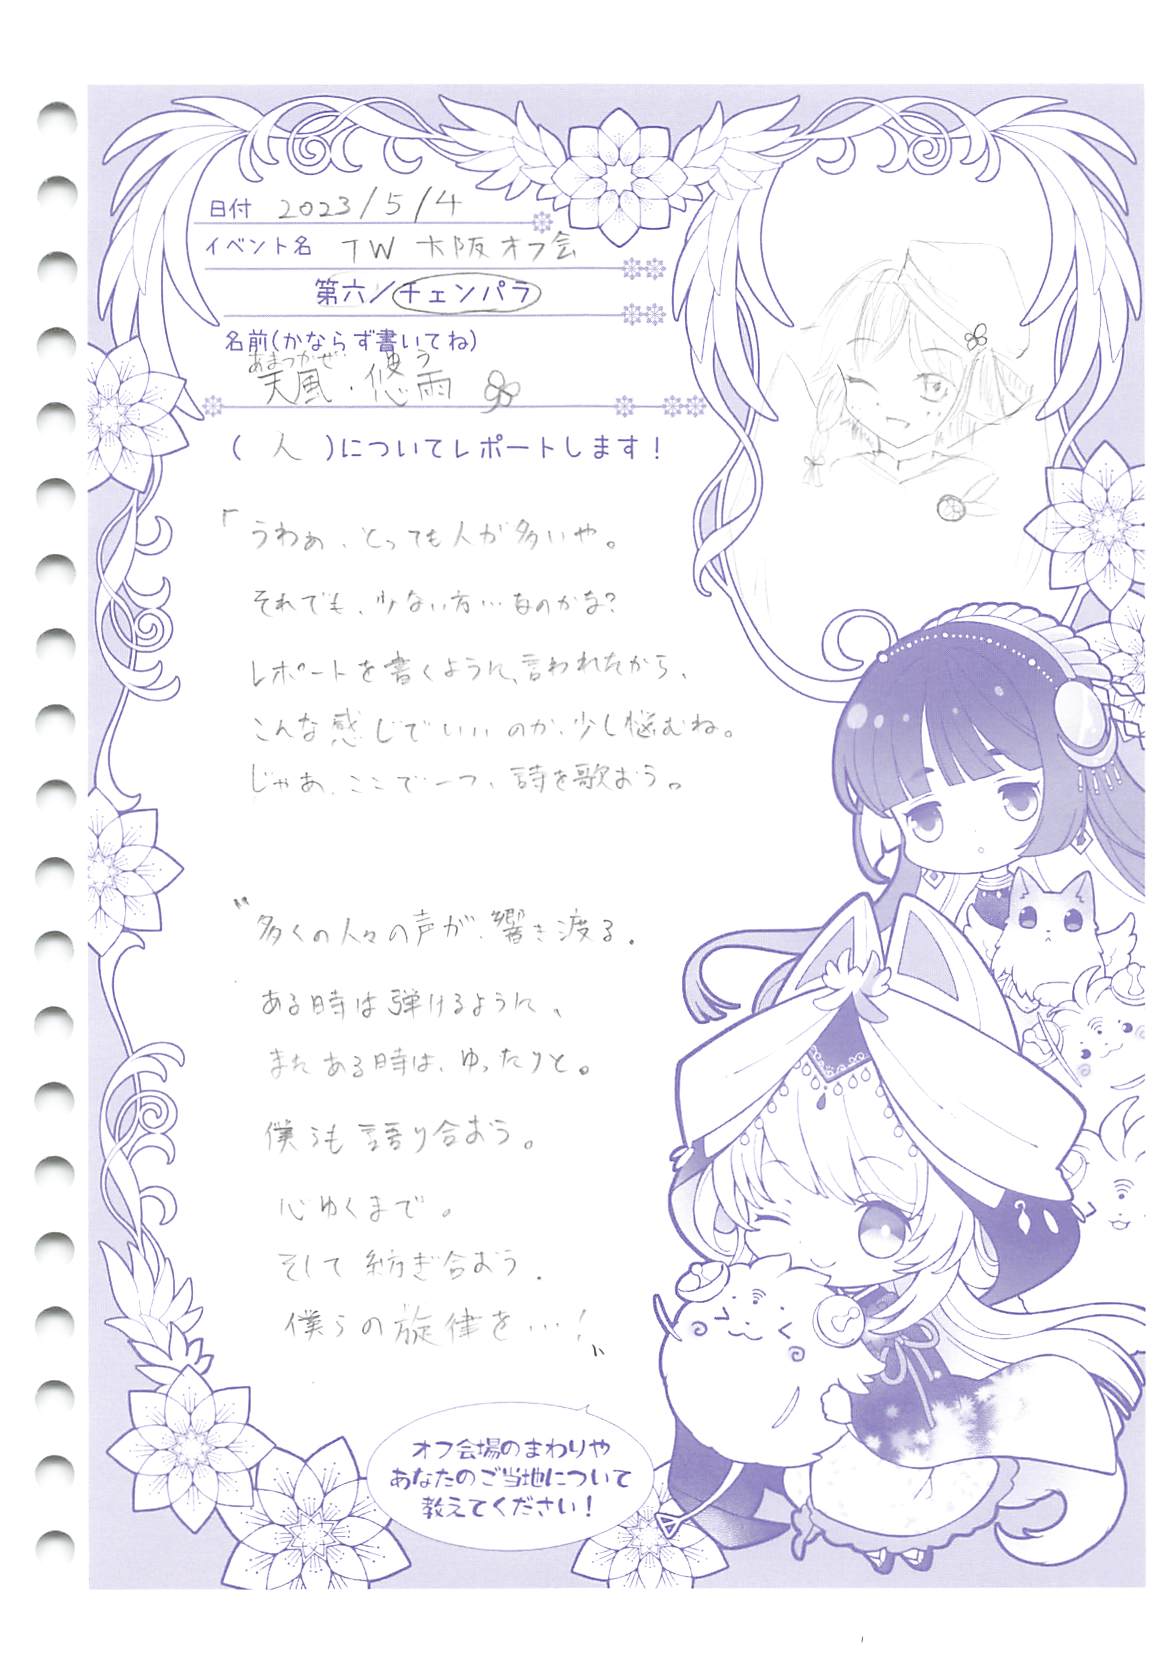 日付 2023/5/4
イベント名 TW 大阪オフ会
第六/チェンパラ
名前(かならず書いてね)
あまつかぜ ゆう
天風・悠雨
( 人 )についてレポートします!
「うわぁ、とっても人が多いや。
それでも、少ない方…なのかな?
レポートを書くように、言われたから、
こんな感じでいいのか、少し悩むね。
じゃあ、ここで一つ、詩を歌おう。
"多くの人々の声が、響き渡る。
ある時は弾けるように、
またある時は、ゆったりと。
僕らも語り合おう。
心ゆくまで。
そして紡ぎ合おう。
僕らの旋律を…!"
オフ会場のまわりや
あなたのご当地について
教えてください!